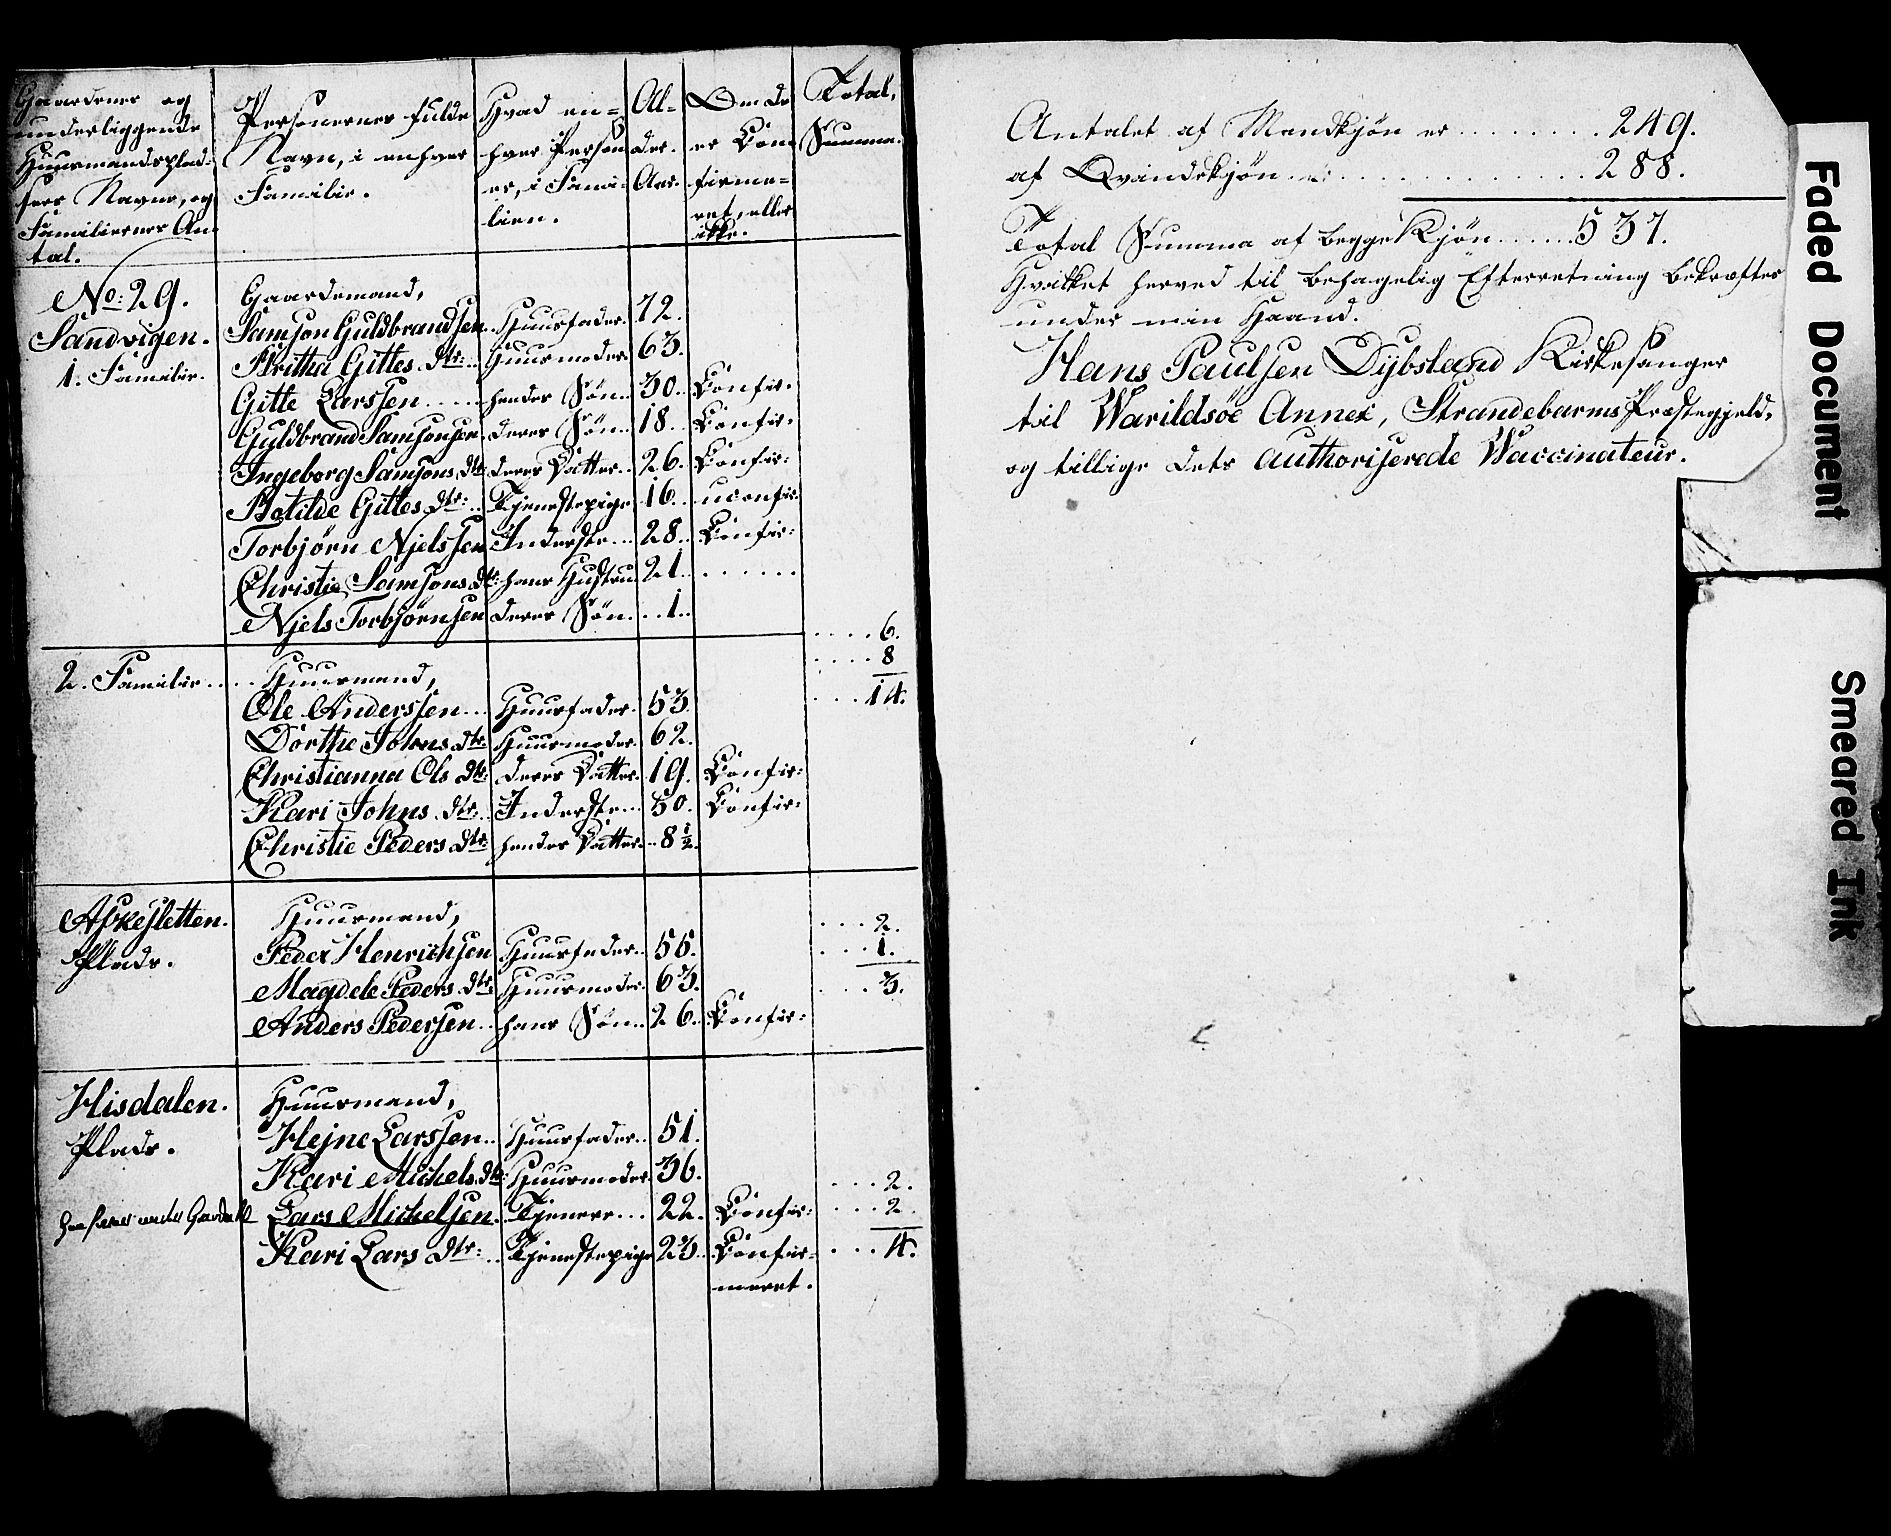 Gaardenes og
underliggende
Huusmandsplad-
sers Navne, og
Familiernes An-
tal.
Personernes fulde
Navn, i enhver
Familie.
Hvad en-
hver Person
er, i Fami-
lien.
Al-
der.
Aar.
Om de
er Con-
firme-
ret, eller
ikke.
Total,
Summa.
No: 29. Gaardemand,
Sandvigen. Samson Guldbrandsen. Huusfader. 72.
1. Familie. Britha Gittes dtr: Huusmoder 63.
Gitte Larssen hendes Søn 30. Confir:
Guldbrand Samsonsen deres Søn 18. Confir:
Ingeborg Samsons dtr: deres Datter 26. Confir:
Botilde Gittes dtr: Tjenestepige 16. uconfir:
Torbjørn Njelssen Inderste 28. Confir:
Christie Samsons dtr: hans Hustrue 21.
Njels Torbjørnsen deres Søn 1.
6.
8
14.
2. Familie Huusmand,
Ole Anderssen Huusfader. 53.
Dorthe Johns dtr: Huusmoder 62.
Christianna Ols dtr: deres Datter. 19. Confir:
Kari Johns dtr: Inderste 50. Confir:
Christie Peders dtr: hendes Datter. 8 1/2.
Askesletten. Huusmand, 2.
Plads. Peder Henrichsen Huusfader 55. 1.
Magdele Peders dtr: Huusmoder 63. 3.
Anders Pedersen hans Søn 26. Confir:
Hisdalen. Huusmand,
Plads. Hejne Larssen Huusfader 51.
Kari Michels dtr: Huusmoder 36. 2.
Lars Michelsen. Tjener 22. Confir: 2
Kari Lars dtr: Tjenestepige 23. Confir- 4.
meret.
Antalet af Mandkjøn er 249.
af Qvindekjøn 288.
Total Summa af begge Kjøn 537.
Hvilket herved til behagelig Efterretning bekræftes
under min Haand.
Hans Paulsen Dybsland Kirkesanger
til Warildsøe Annex, Strandebarms Præstegjeld,
og tillige dets authoriserede Vaccinateur.
Faded Document
Smeared Ink